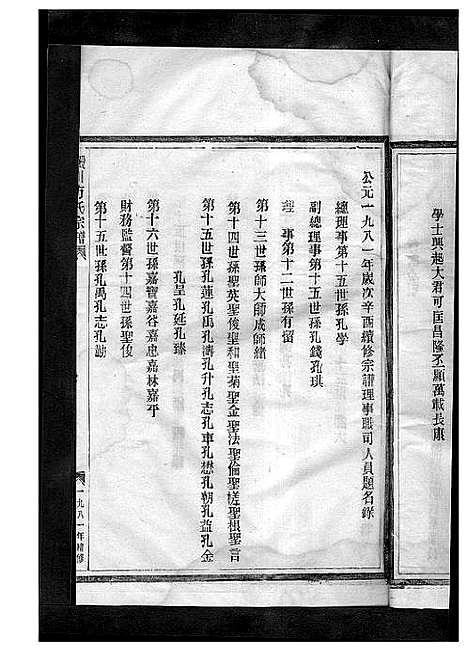 學士興起大君可匡昌隆丕顯萬載長康
公元一九八一年歲次辛酉續修宗譜理事職司人員題名錄
總理事第十五世孫孔學
副總理事第十五世孫孔錢孔琪
理事第十二世孫有留
第十三世孫師大師成師緒
第十四世孫聖英聖俊聖和聖菊聖金聖法聖倫聖槎聖根聖言
第十五世孫孔蓮孔禹孔濤孔升孔志孔車孔懋孔朝孔益孔金
孔呈孔延孔臻
第十六世孫嘉寶嘉谷嘉忠嘉林嘉平
財務監督第十四世孫聖俊
第十五世孫孔禹孔志孔勛
川方氏宗譜
一九八一年續修